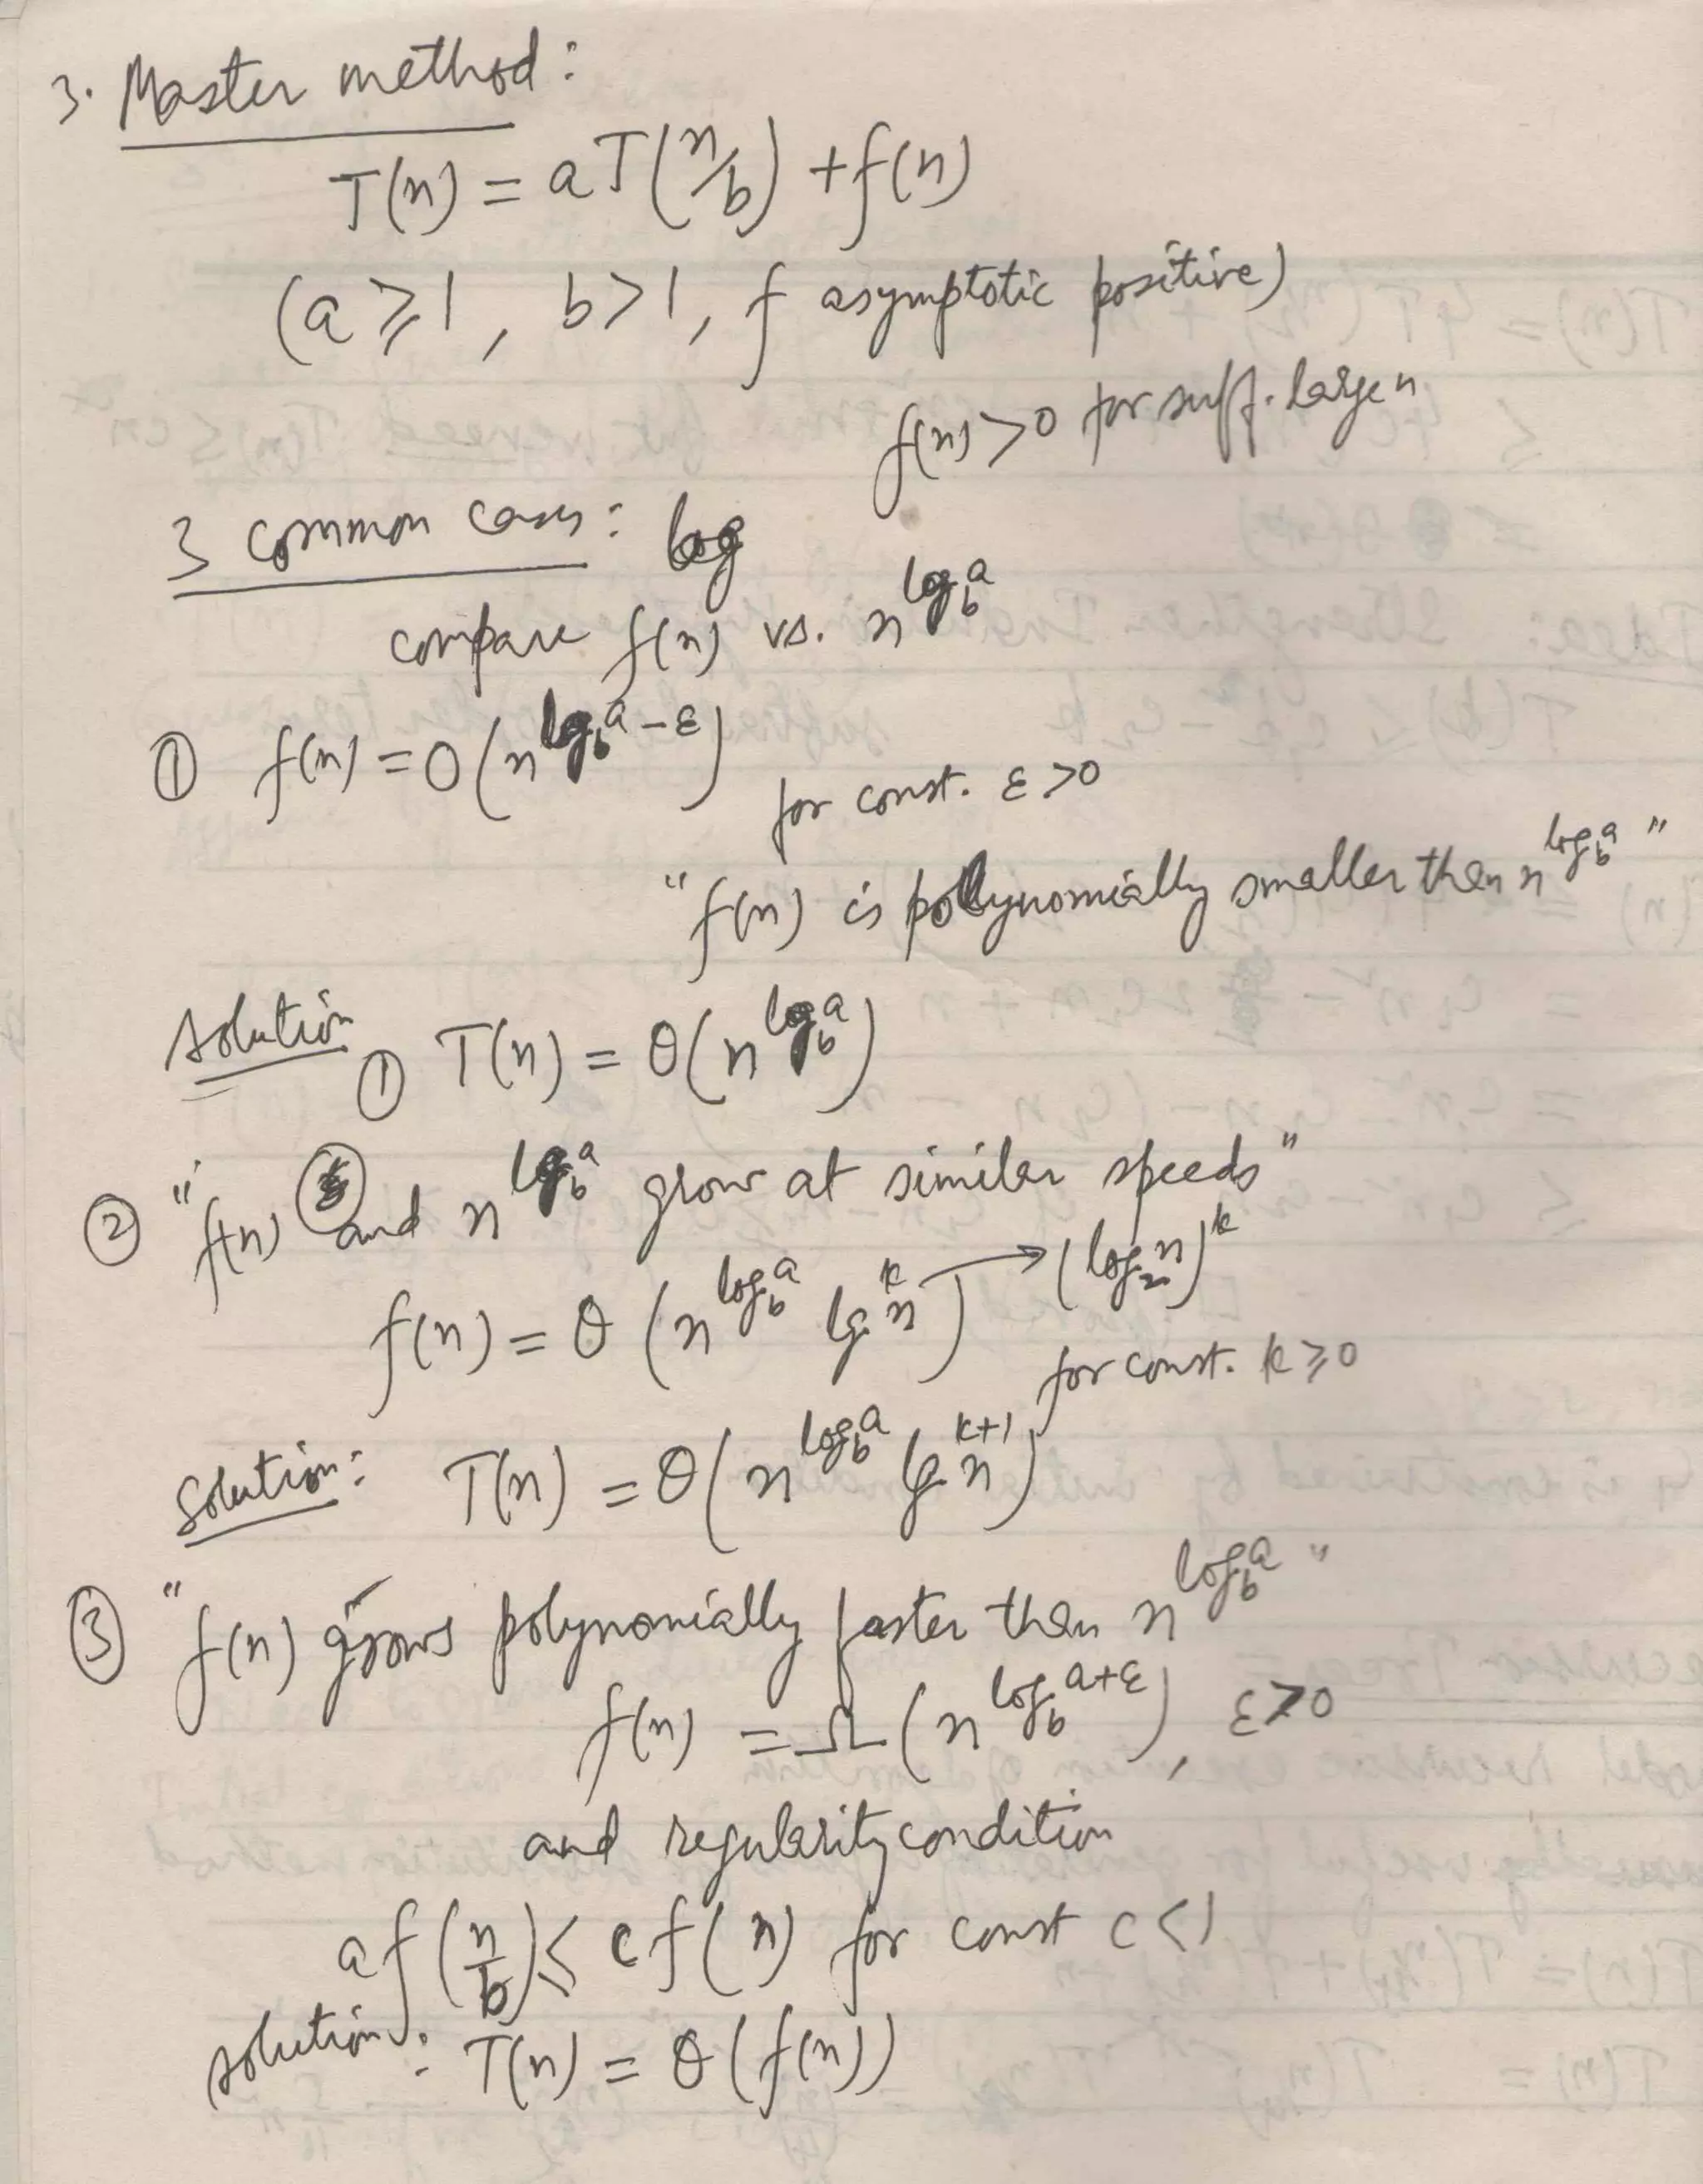 3. Master method:
T(n) = aT(n/b) + f(n)
(a ≥ 1, b > 1, f asymptotic positive)
f(n) > 0 for suff. large n
3 common cases: log
compare f(n) vs. n^{log_b a}
① f(n) = O(n^{log_b a - ε})
for const. ε > 0
"f(n) is polynomially smaller then n^{log_b a}"
solution ① T(n) = θ(n^{log_b a})
② "f(n) and n^{log_b a} grow at similar speeds"
f(n) = θ(n^{log_b a} lg^k n) → (log_2 n)^k
for const. k ≥ 0
Solution: T(n) = θ(n^{log_b a} lg^{k+1} n)
③ "f(n) grows polynomially faster then n^{log_b a}"
f(n) = Ω(n^{log_b a+ε}), ε > 0
and regularity condition
a f(n/b) ≤ c f(n) for const c < 1
solution: T(n) = θ(f(n))